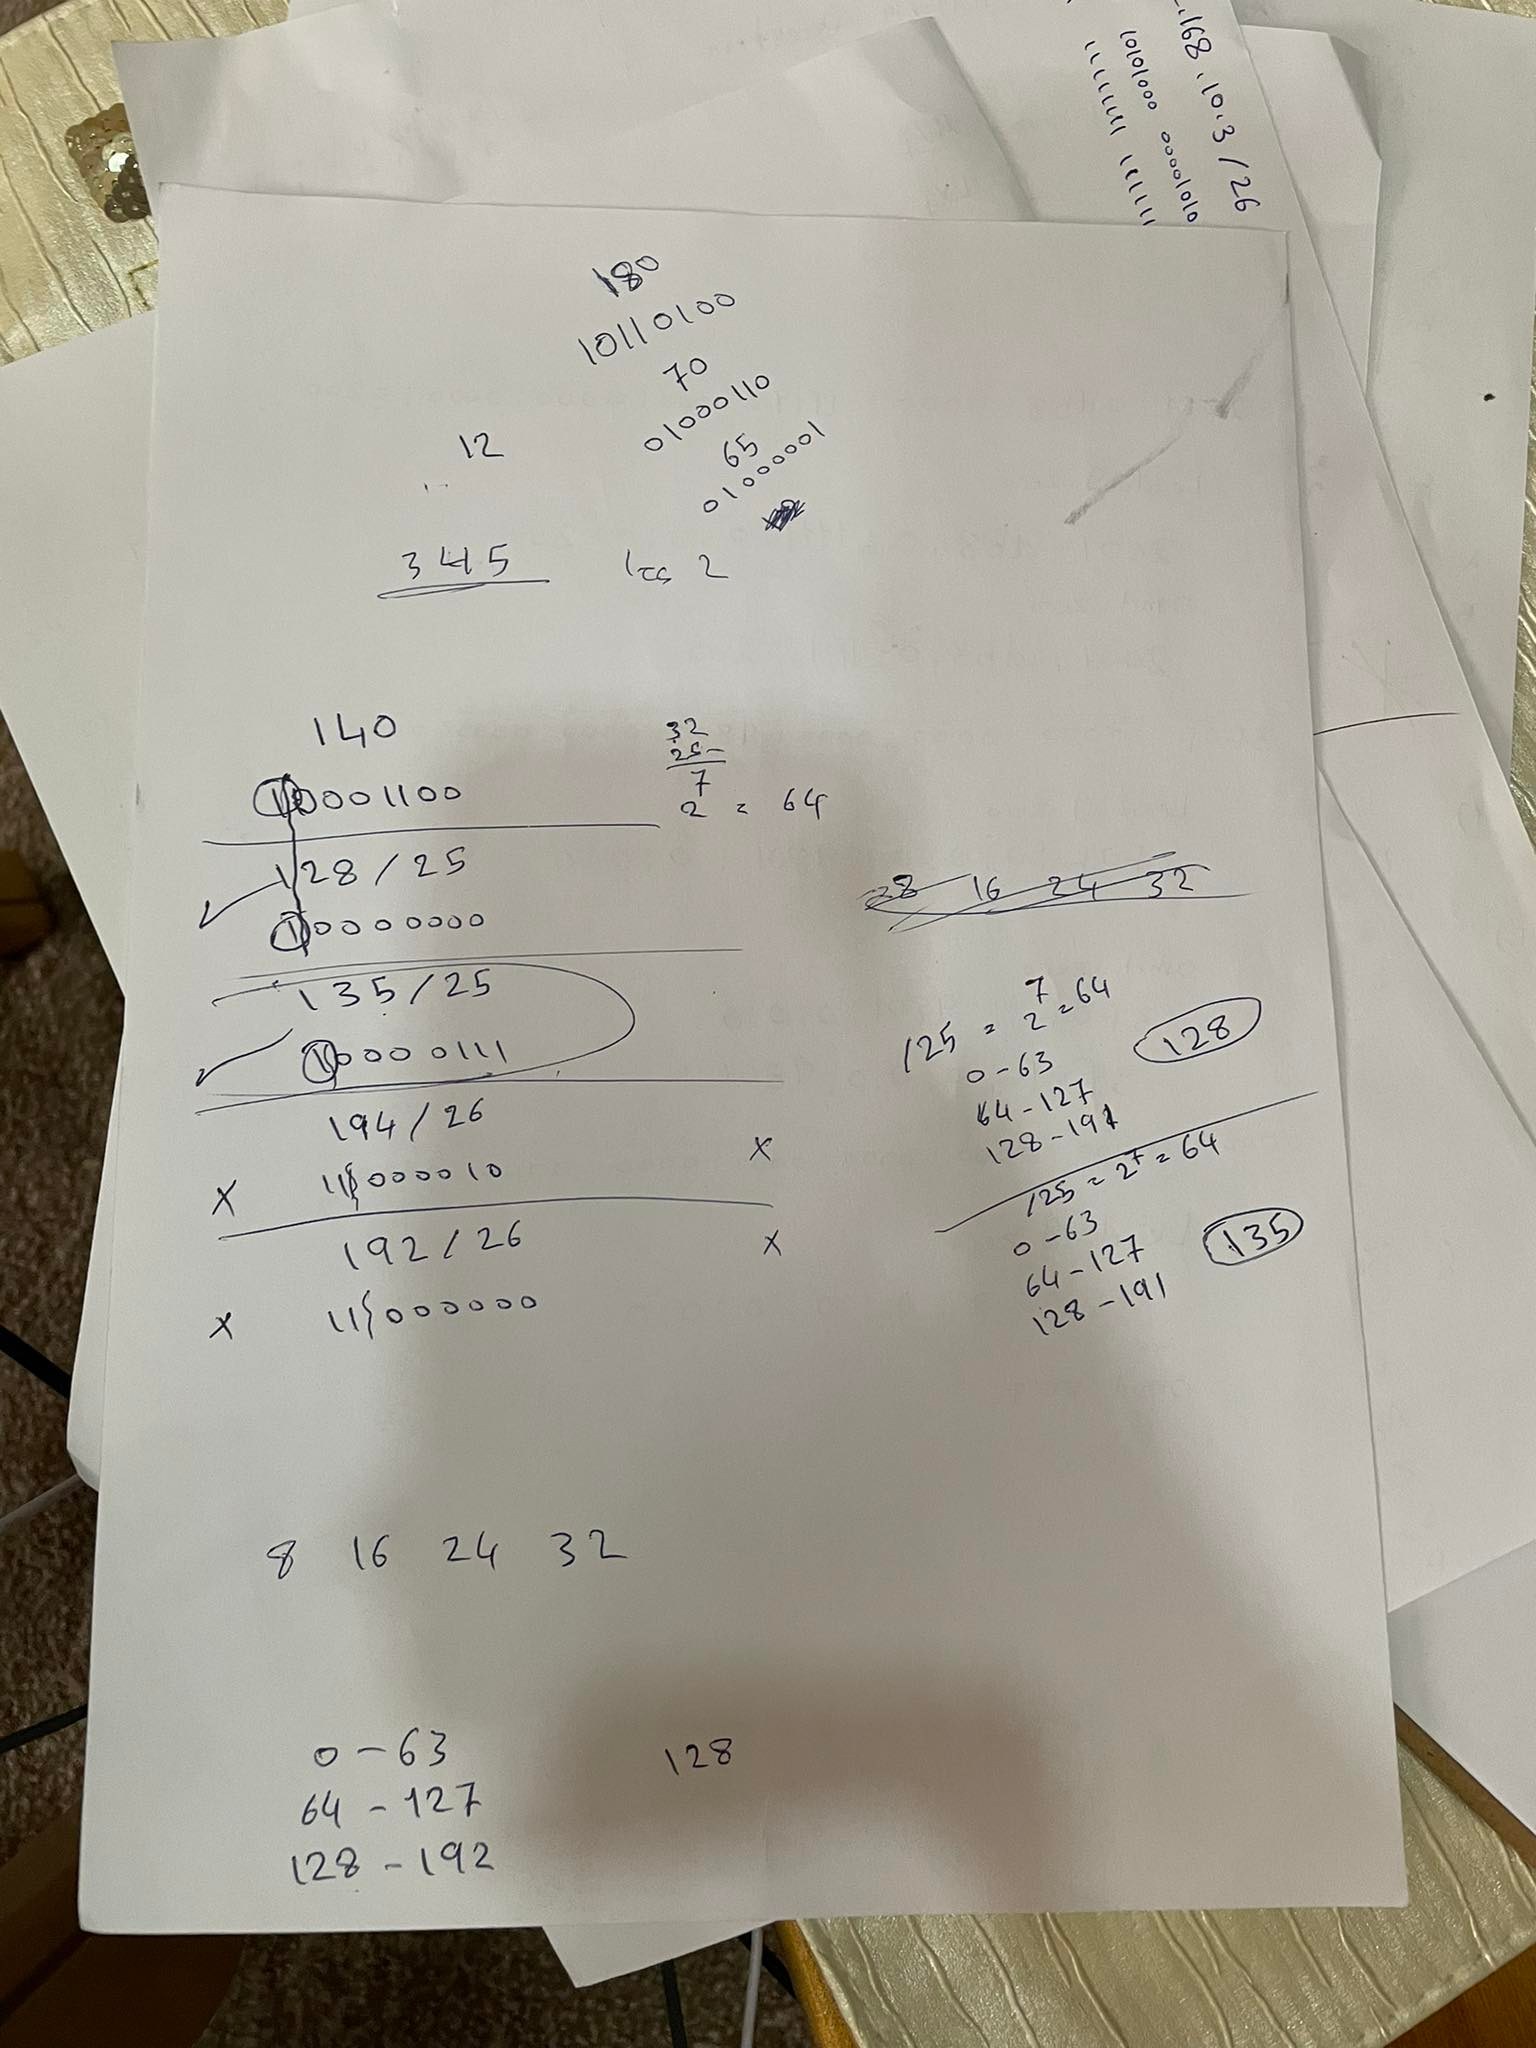 .168.10.3/26
10101000 00001010
11111111 111111
180
10110100
70
01000110
65
01000001
12
345
2
140
10001100
128/25
10000000
135/25
10000111
194/26
x 11000010 x
192/26
x 11000000 x
32
25-
7
2 = 64
28 16 24 32
7
125 = 2 = 64
0-63
64-127
128-191
128
125 = 2⁷ = 64
0-63
64-127
128-191
135
8 16 24 32
0-63
64-127
128-192
128